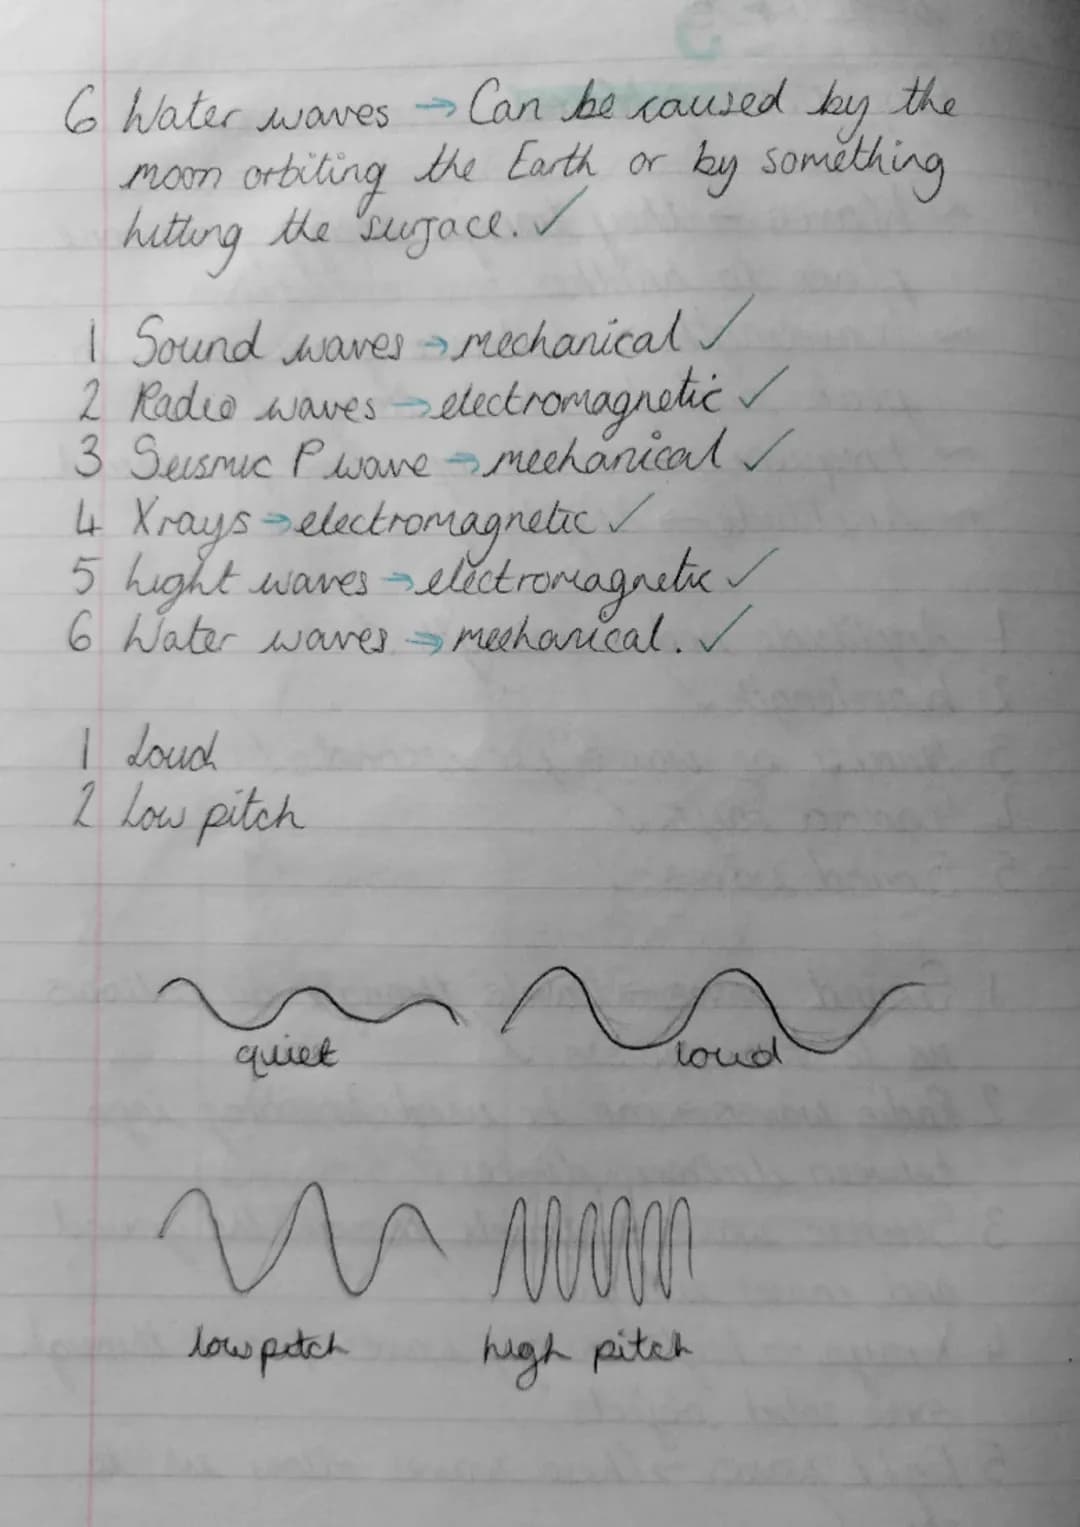 6 Water waves → Can be caused by the
moon orbiting the Earth or by something
hitting the surface. ✓
1 Sound waves → mechanical ✓
2 Radio waves → electromagnetic ✓
3 Seismic P wave → mechanical ✓
4 Xrays → electromagnetic ✓
5 Light waves → electromagnetic ✓
6 Water waves → mechanical. ✓
1 Loud
2 Low pitch
quiet loud
low pitch high pitch